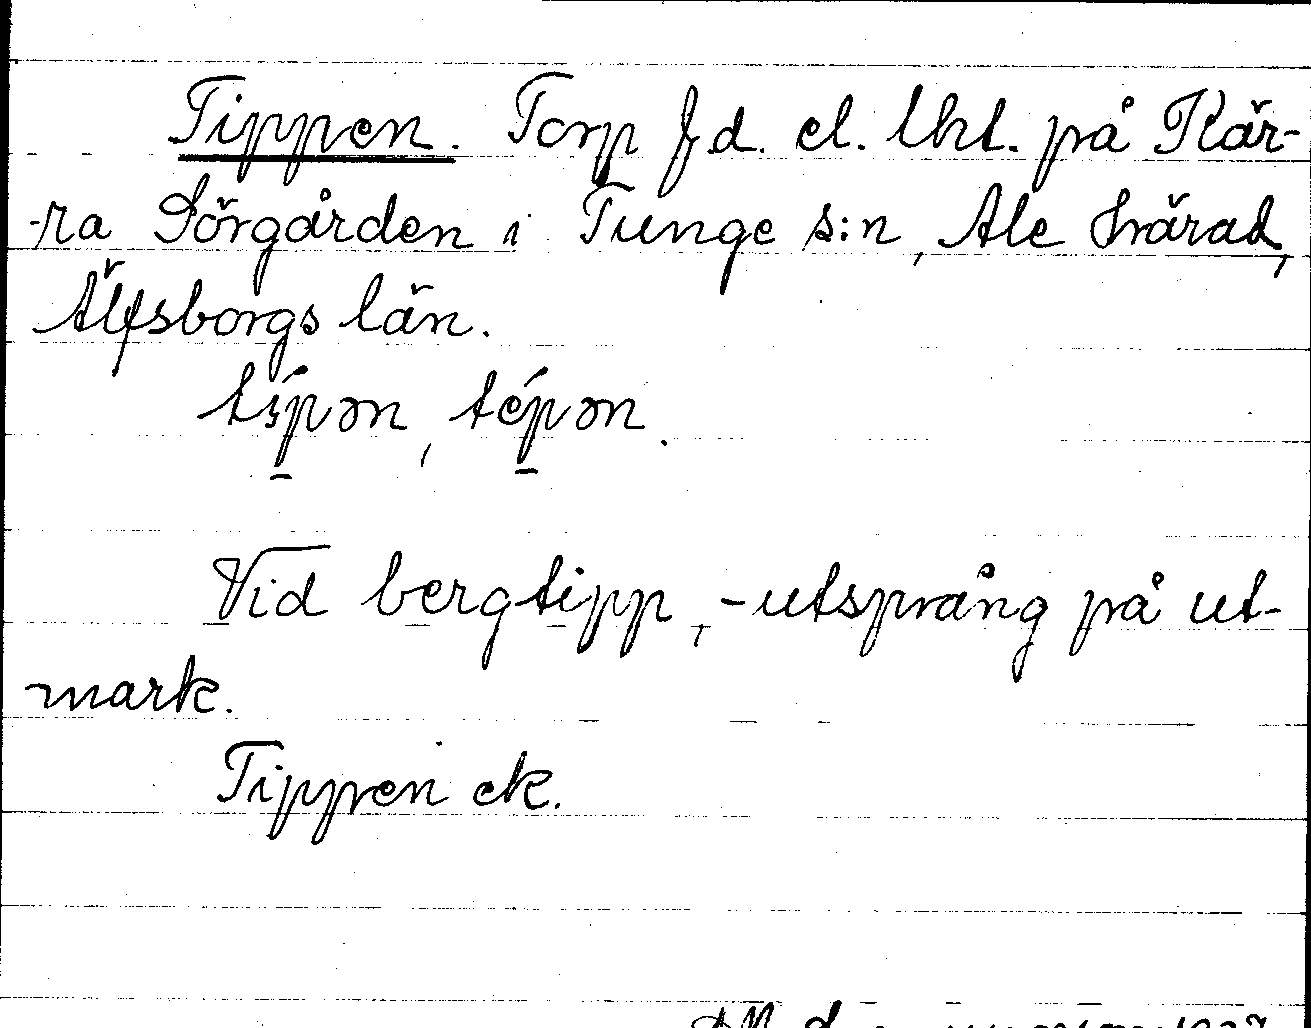 Tippen. Torp f.d. el. lht. på Kär-
-ra Sörgården i Tunge s:n, Ale härad,
Älfsborgs län.
típən, tépən.
Vid bergtipp, -utsprång på ut-
mark.
Tippen ek.